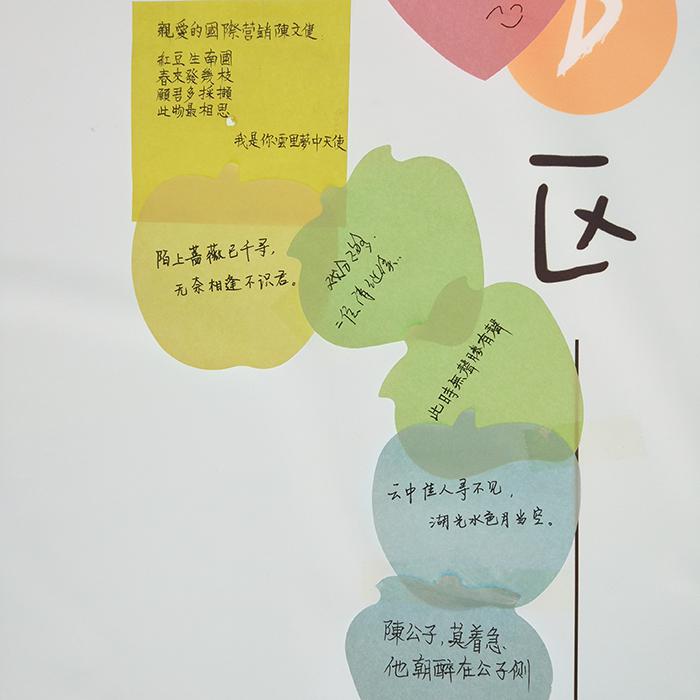 親愛的國際营銷陳文健
紅豆生南國
春來發幾枝
願君多採擷
此物最相思
我是你雲里夢中天使
陌上蔷薇已千寻，
无奈相逢不识君。
二位请继续..
此時無聲勝有聲
云中佳人寻不见，
湖光水色月当空。
陳公子,莫着急
他朝醉在公子侧
区